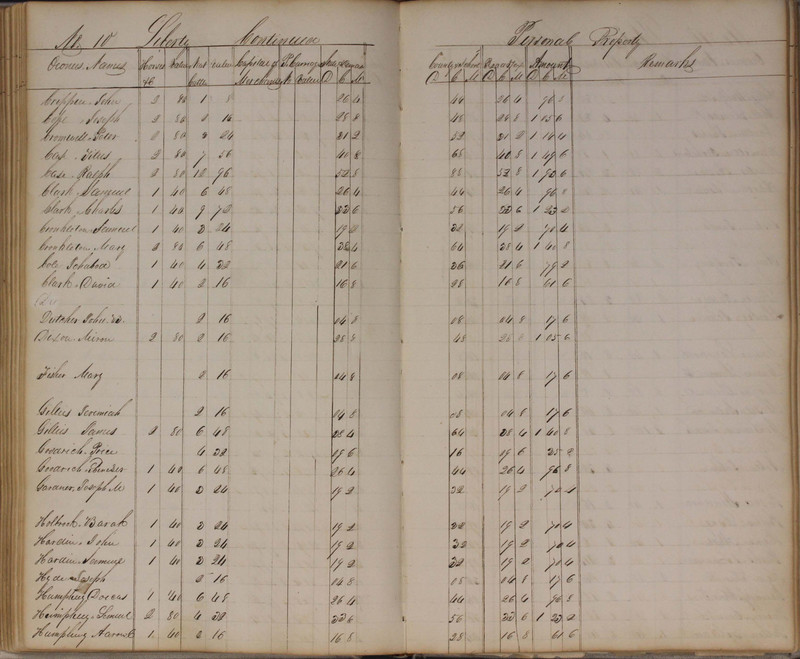 No. 10 Liberty Continued Personal Property
Owners Names Horses Value Neat Cattle Value Capital Merchandize Value State Amount Remarks
Croppen John 2 80 1 8 26 4 44 26 4 96 8
Cope Joseph 2 80 2 16 28 8 48 28 8 1 05 6
Cromwell Peter 2 80 3 24 31 2 52 31 2 1 14 4
Case Titus 2 80 7 56 40 8 68 40 8 1 49 6
Case Ralph 2 80 12 96 52 8 88 52 8 1 93 6
Clark Samuel 1 40 6 48 26 4 44 26 4 96 8
Clark Charles 1 40 9 72 33 6 56 33 6 1 23 2
Samuel 1 40 3 24 19 2 32 19 2 70 4
Mary 2 80 6 48 38 4 64 38 4 1 40 8
Cole 1 40 4 32 21 6 36 21 6 79 2
Clark David 1 40 2 16 16 8 28 16 8 61 6
Dutcher John 2 16 04 8 08 04 8 17 6
Dixon Miron 2 80 2 16 28 8 48 28 8 1 05 6
Fisher Mary 2 16 04 8 08 04 8 17 6
Gillies Jeremiah 2 16 04 8 08 04 8 17 6
Gillies James 2 80 6 48 38 4 64 38 4 1 40 8
Goodrich 4 32 09 6 16 09 6 35 2
Goodrich Ebenezer 1 40 6 48 26 4 44 26 4 96 8
Gardner Joseph M 1 40 3 24 19 2 32 19 2 70 4
Holbrook 1 40 3 24 19 2 32 19 2 70 4
Hardin John 1 40 3 24 19 2 32 19 2 70 4
Hardin Samuel 1 40 3 24 19 2 32 19 2 70 4
Hyde Joseph 2 16 04 8 08 04 8 17 6
Humphrey Dorcas 1 40 6 48 26 4 44 26 4 96 8
Humphrey Lemuel 2 80 4 32 33 6 56 33 6 1 23 2
Humphrey 1 40 2 16 16 8 28 16 8 61 6